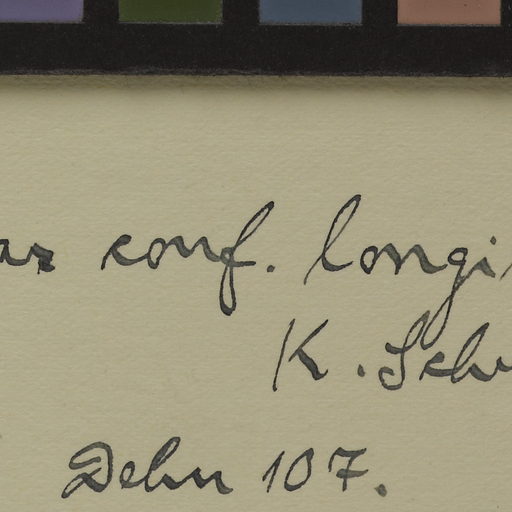 conf. longi
K. Sch
Dehn 107.